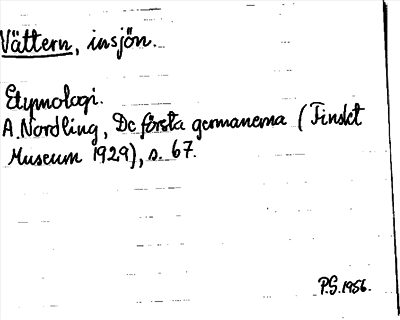 Vättern, insjön.
Etymologi.
A. Nordling, De första germanerna (Finskt
Museum 1929), s. 67.
P.S. 1956.